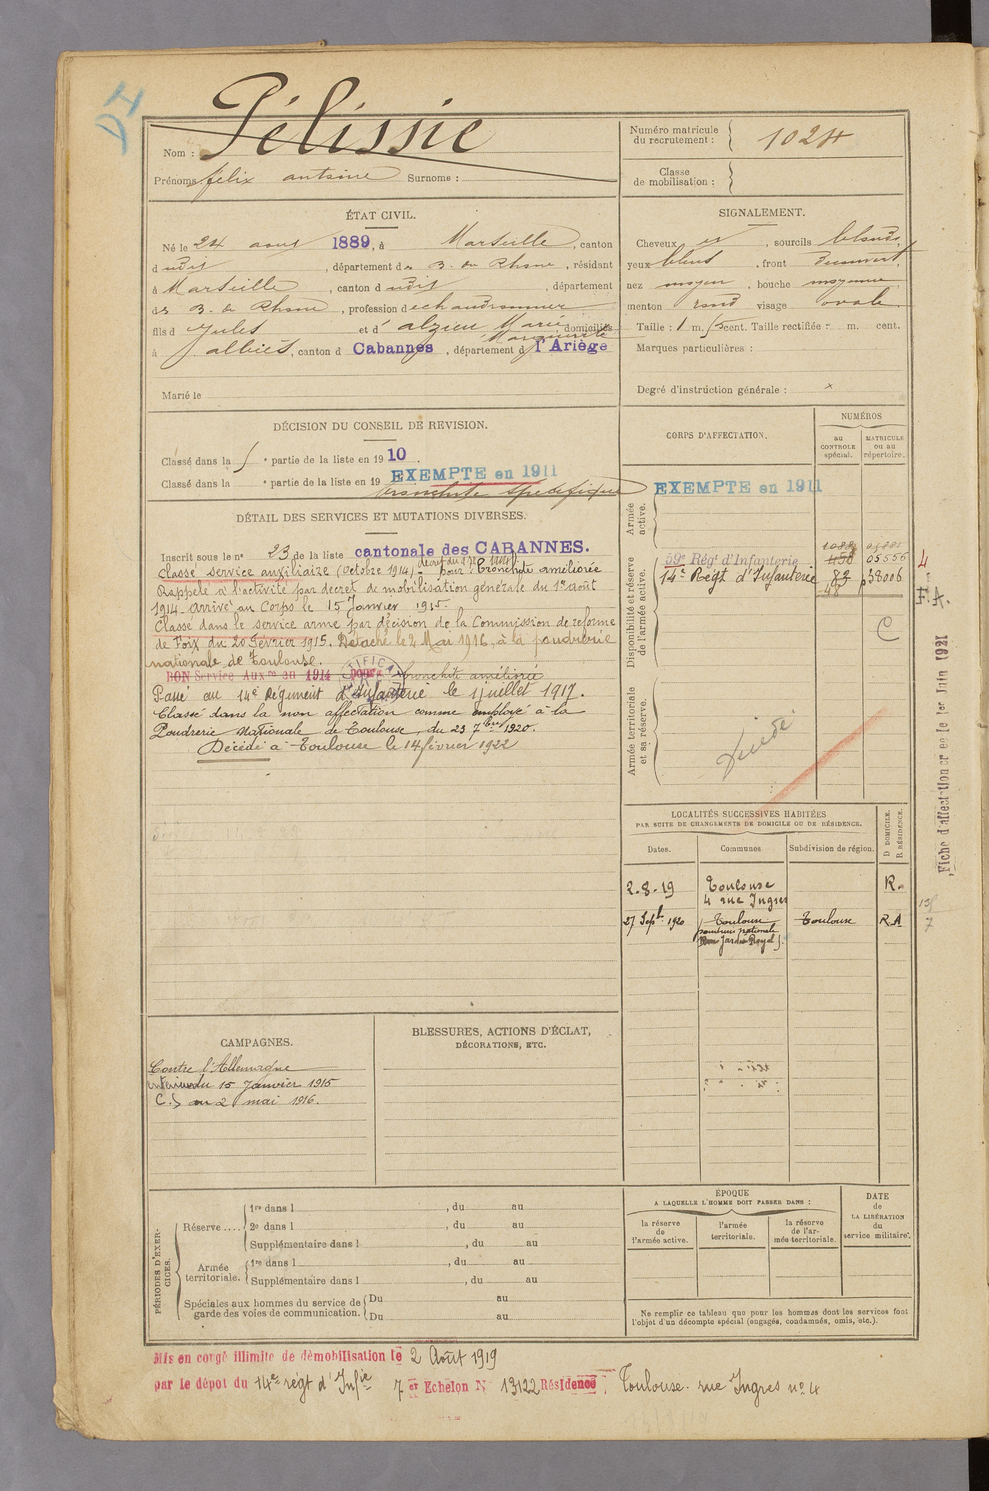 DI
Nom : Pélissié
Prénoms félix antoine Surnoms :
Numéro matricule
du recrutement : 1024
Classe
de mobilisation :
ÉTAT CIVIL.
Né le 24 aout 1889, à Marseille, canton
d udit, département des B. du Rhône, résidant
à Marseille, canton d udit, département
des B. du Rhône, profession d echaudronnier
fils d Jules et d' alzieu Marie domiciliés
Marguerite
à albiès, canton d Cabannes, département d l'Ariège
Marié le
SIGNALEMENT.
Cheveux et, sourcils blonds,
yeux bleus, front découvert,
nez moyen, bouche moyenne
menton rond visage ovale
Taille : 1 m. cent. Taille rectifiée : m. cent.
Marques particulières :
Degré d'instruction générale : x
DÉCISION DU CONSEIL DE REVISION.
Classé dans la partie de la liste en 1910.
Classé dans la partie de la liste en 19 EXEMPTE en 1911
bronchite spécifique
DÉTAIL DES SERVICES ET MUTATIONS DIVERSES.
Inscrit sous le no 23 de la liste cantonale des CABANNES.
Classé service auxiliaire (octobre 1914) pour : bronchite améliorée
Rappelé à l'activité par décret de mobilisation générale du 1er août
1914. Arrivé au Corps le 15 Janvier 1915.
Classé dans le service armé par décision de la Commission de réforme
de Foix du 20 Février 1915. Détaché le 2 Mai 1916, à la poudrerie
nationale de Toulouse.
BON Service Auxre en 1914 pour bronchite améliorée
Passé au 14e Régiment d'Infanterie le 1 Juillet 1917.
Classé dans la non affectation comme employé à la
Poudrerie Nationale de Toulouse, du 23 7bre 1920.
Décédé à Toulouse le 14 février 1922
CORPS D'AFFECTATION.
NUMÉROS
au CONTROLE spécial.
MATRICULE ou au répertoire.
Armée active.
EXEMPTE en 1911
Disponibilité et réserve de l'armée active.
59e Régt d'Infanterie 458 05556
14e Régt d'Infanterie 82 p38006
48
C
Armée territoriale et sa réserve.
Décédé
4
Fiche d'affectation créée le 1er Juin 1921
LOCALITÉS SUCCESSIVES HABITÉES
PAR SUITE DE CHANGEMENTS DE DOMICILE OU DE RÉSIDENCE.
Dates.
Communes
Subdivision de région.
D DOMICILE.
R RÉSIDENCE.
2-8-19 Toulouse R.
4 rue Ingres
27 Sept. 1920 Toulouse Toulouse R.A
poudrerie nationale
Jardin Royal
CAMPAGNES.
Contre l'Allemagne
intérieur du 15 Janvier 1915
C.S au 2 mai 1916.
BLESSURES, ACTIONS D'ÉCLAT,
DÉCORATIONS, ETC.
PÉRIODES D'EXERCICES.
Réserve ....
1re dans l , du au
2e dans l , du au
Supplémentaire dans l , du au
Armée territoriale.
1re dans l , du au
Supplémentaire dans l , du au
Spéciales aux hommes du service de
garde des voies de communication.
Du au
Du au
ÉPOQUE
A LAQUELLE L'HOMME DOIT PASSER DANS :
la réserve de l'armée active.
l'armée territoriale.
la réserve de l'armée territoriale.
DATE de LA LIBÉRATION du service militaire.
Ne remplir ce tableau que pour les hommes dont les services font
l'objet d'un décompte spécial (engagés, condamnés, omis, etc.).
Mis en congé illimité de démobilisation le 2 Août 1919
par le dépôt du 14e régt d'Infie 7e Echelon No 13122 Résidence, Toulouse. rue Ingres no 4